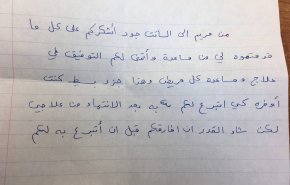 من مريم الى السانت جود أشكركم على كل ما
قدمتموه لي من مساعدة وأتمنى لكم التوفيق في
علاج ومساعدة كل مريض وهذا جزء بسيط كنت
أوفره كي اتبرع لكم به بعد الانتهاء من علاجي
لكن شاء القدر ان افارقكم قبل ان أتبرع به لكم